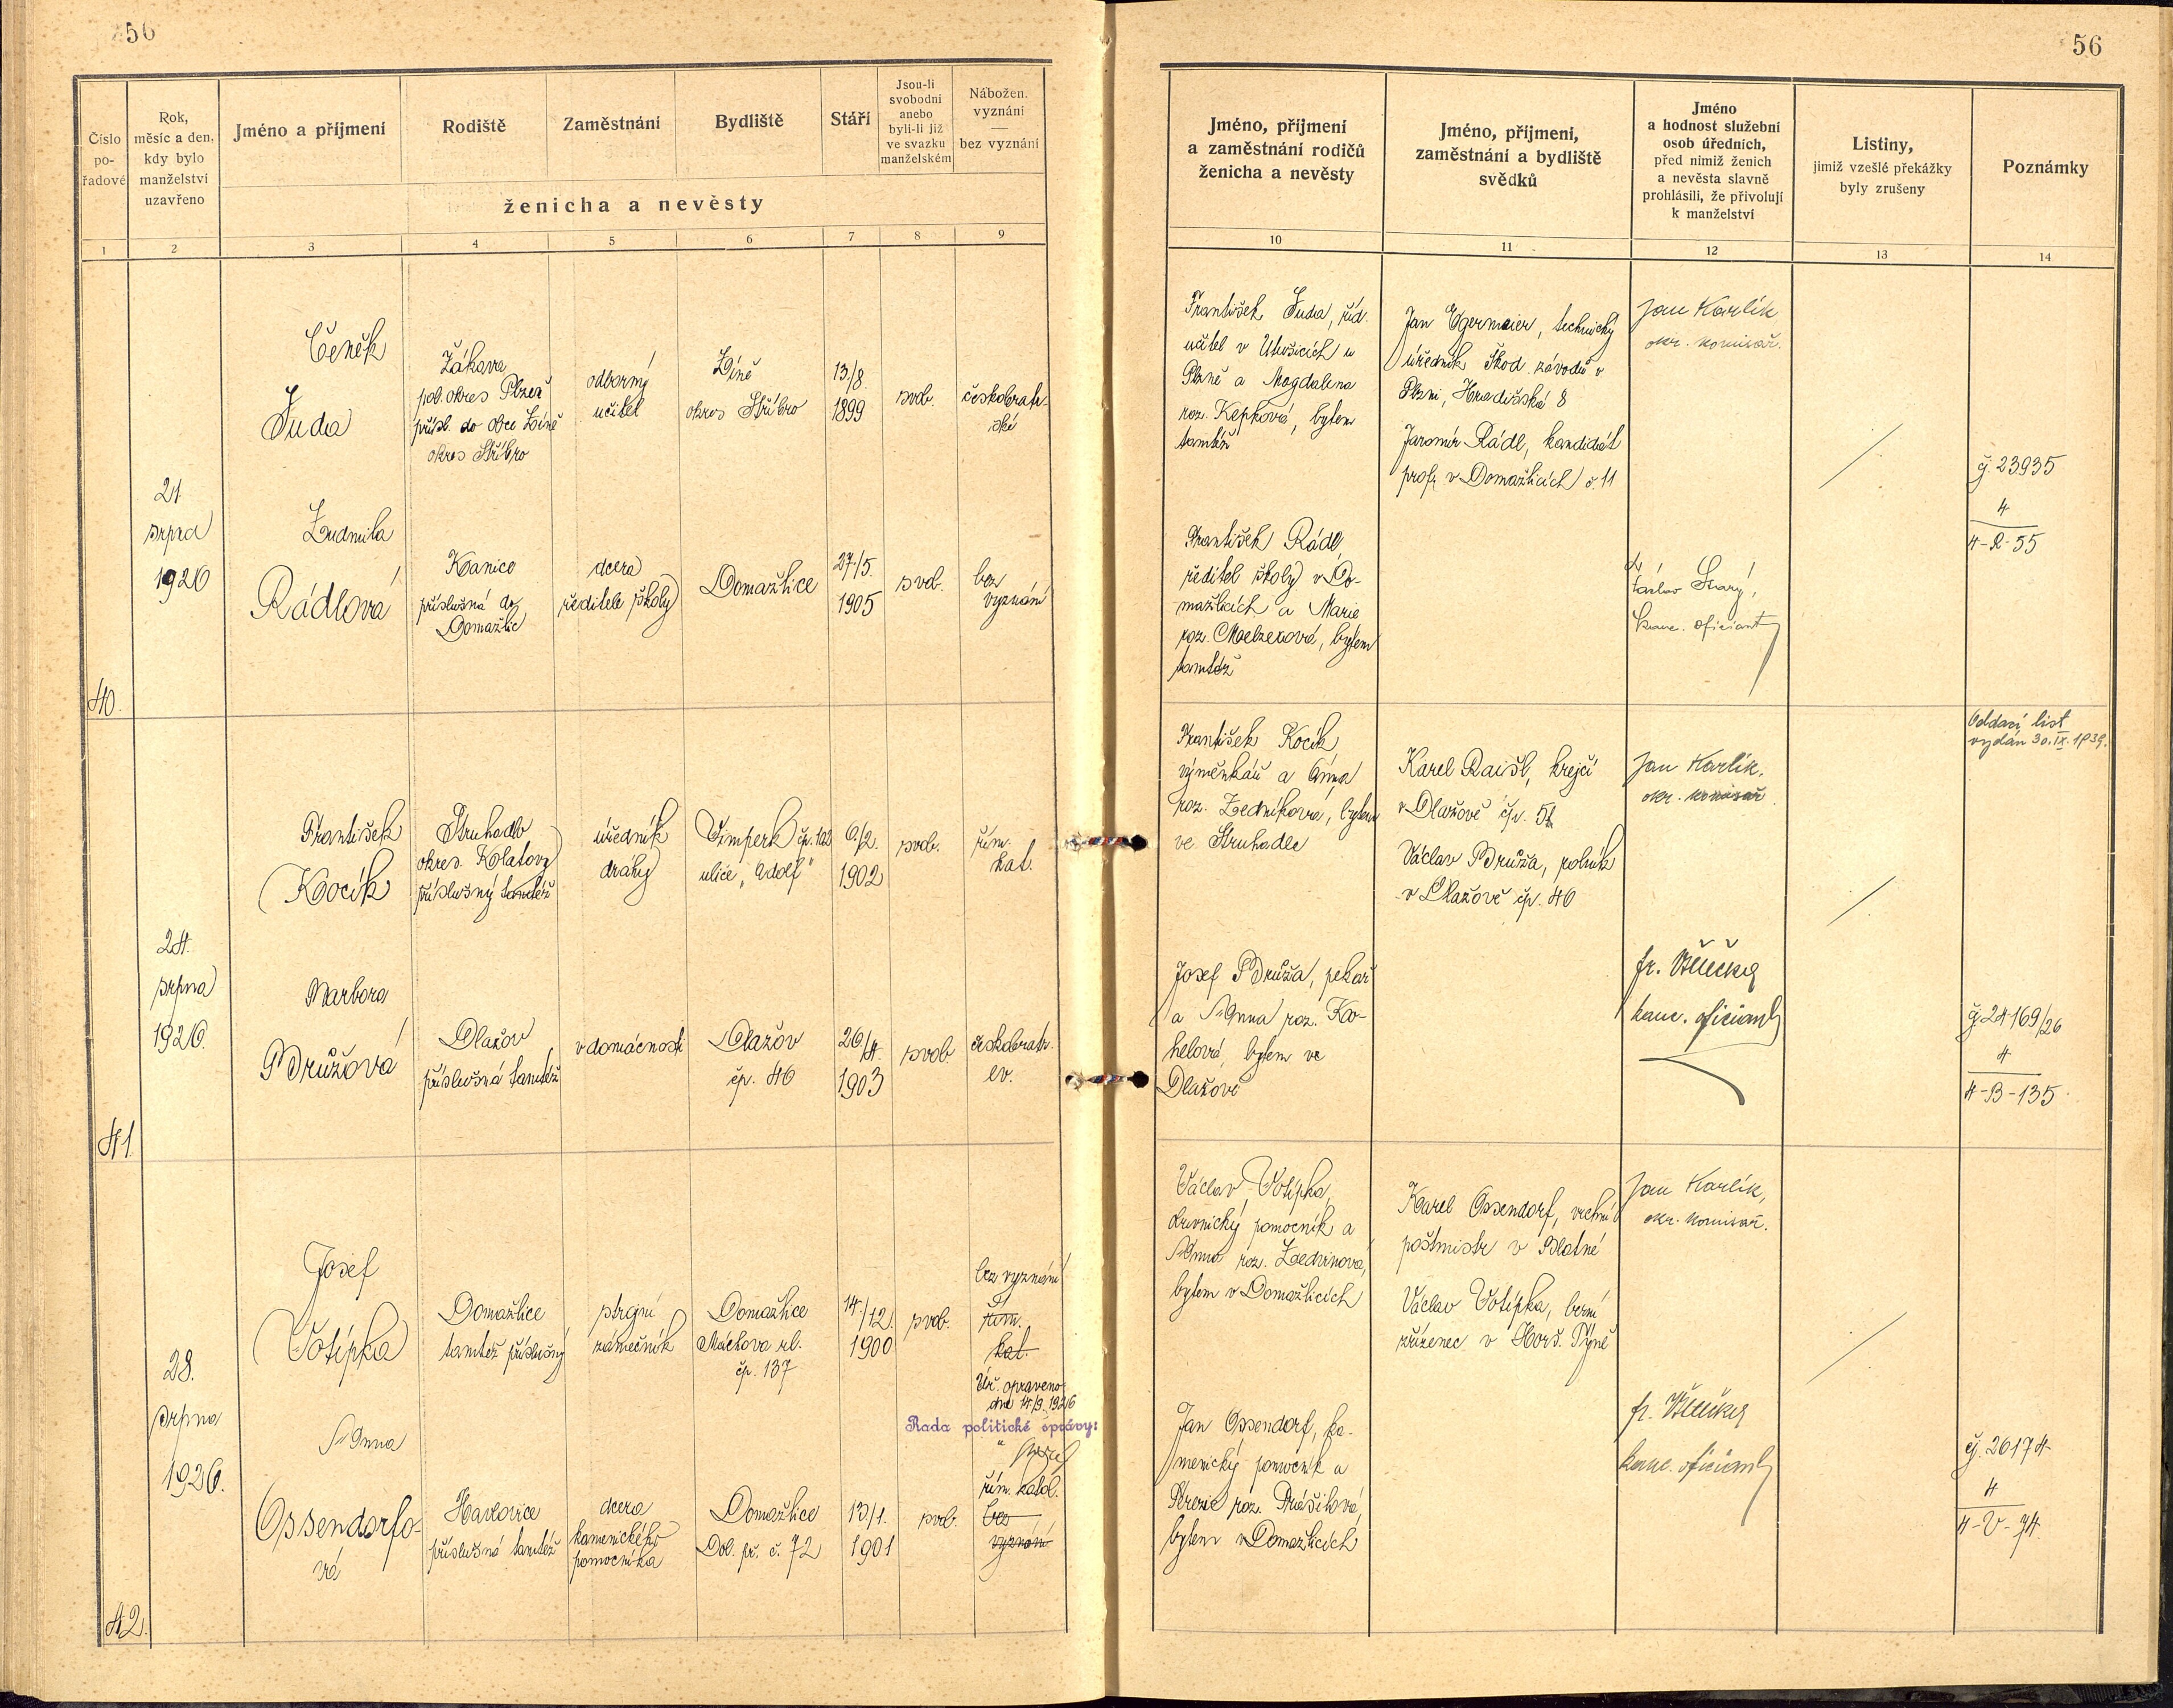 56
56
Číslo
po-
řadové
Rok,
měsíc a den,
kdy bylo
manželství
uzavřeno
Jméno a příjmení
Rodiště
Zaměstnání
Bydliště
Stáří
Jsou-li
svobodni
anebo
byli-li již
ve svazku
manželském
Nábožen.
vyznání
—
bez vyznání
ženicha a nevěsty
Jméno, příjmení
a zaměstnání rodičů
ženicha a nevěsty
Jméno, příjmení,
zaměstnání a bydliště
svědků
Jméno
a hodnost služební
osob úředních,
před nimiž ženich
a nevěsta slavně
prohlásili, že přivolují
k manželství
Listiny,
jimiž vzešlé překážky
byly zrušeny
Poznámky
1 2 3 4 5 6 7 8 9
10 11 12 13 14
40.
21.
srpna
1926
Čeněk
Žuda
Žákava
pol. okres Plzeň
přísl. do obce Líně
okres Stříbro
odborný
učitel
Líně
okres Stříbro
13/8.
1899
svob.
českobratr-
ské
Ludmila
Rádlová
Kanice
příslušná do
Domažlic
dcera
ředitele školy
Domažlice
27/5.
1905
svob.
bez
vyznání
František Žuda, říd.
učitel v Utušicích u
Plzně a Magdalena
roz. Kepková, bytem
tamtéž
František Rádl,
ředitel školy v Do-
mažlicích a Marie
roz. bytem
tamtéž
Jan Egermaier, technický
úředník Škod. závodů v
Plzni, Hradišská 8
Jaromír Rádl, kandidát
prof. v Domažlicích č. 11
Jan Karlík
okr. komisař.
Václav Starý,
kanc. oficiant
č.j. 23935
4
4-R-55
41
24.
srpna
1926.
František
Kocík
Struhadlo
okres. Klatovy
příslušný tamtéž
úředník
dráhy
Šimperk čp. 122
ulice „Adolf"
6./2.
1902
svob.
řím.
kat.
Barbora
Bdrůžová
Dlažov
příslušná tamtéž
v domácnosti
Dlažov
čp. 46
26/4.
1903
svob
českobratr.
ev.
František Kocík,
výměnkář a Anna
roz. Ledníková, bytem
ve Struhadle
Josef Bdrůža, pekař
a Anna roz. Ko-
helová, bytem ve
Dlažově
Karel Raišl, krejčí
v Dlažově čp. 51
Václav Bdrůža, rolník
v Dlažově čp. 46
Jan Karlík.
okr. komisař.
fr.
kanc. oficiant
Oddací list
vydán 30.IX.1939.
č.j. 24169/26
4
4-B-135
42.
28.
srpna
1926.
Josef
Votípka
Domažlice
tamtéž příslušný
strojní
zámečník
Domažlice
Máchova ul.
čp. 137
14./12.
1900
svob.
bez vyznání
řím.
kat.
Úř. opraveno
dne 14./9. 1926
Rada politické správy:
Anna
Ossendorfo-
vá
Havlovice
příslušná tamtéž
dcera
kamenického
pomocníka
Domažlice
Dol. př. č. 72
13/1.
1901
svob.
řím. katol.
bez
vyznání
Václav Votípka,
pomocník a
Anna roz. Ledvinová,
bytem v Domažlicích
Jan Ossendorf, ka-
menický pomocník a
Terezie roz. Prášilová,
bytem v Domažlicích
Karel Ossendorf, vrchní
poštmistr v Blatné
Václav Votípka, berní
zřízenec v Horš. Týně
Jan Karlík,
okr. komisař.
fr.
kanc. oficiant
č.j. 26174
4
4-V-74